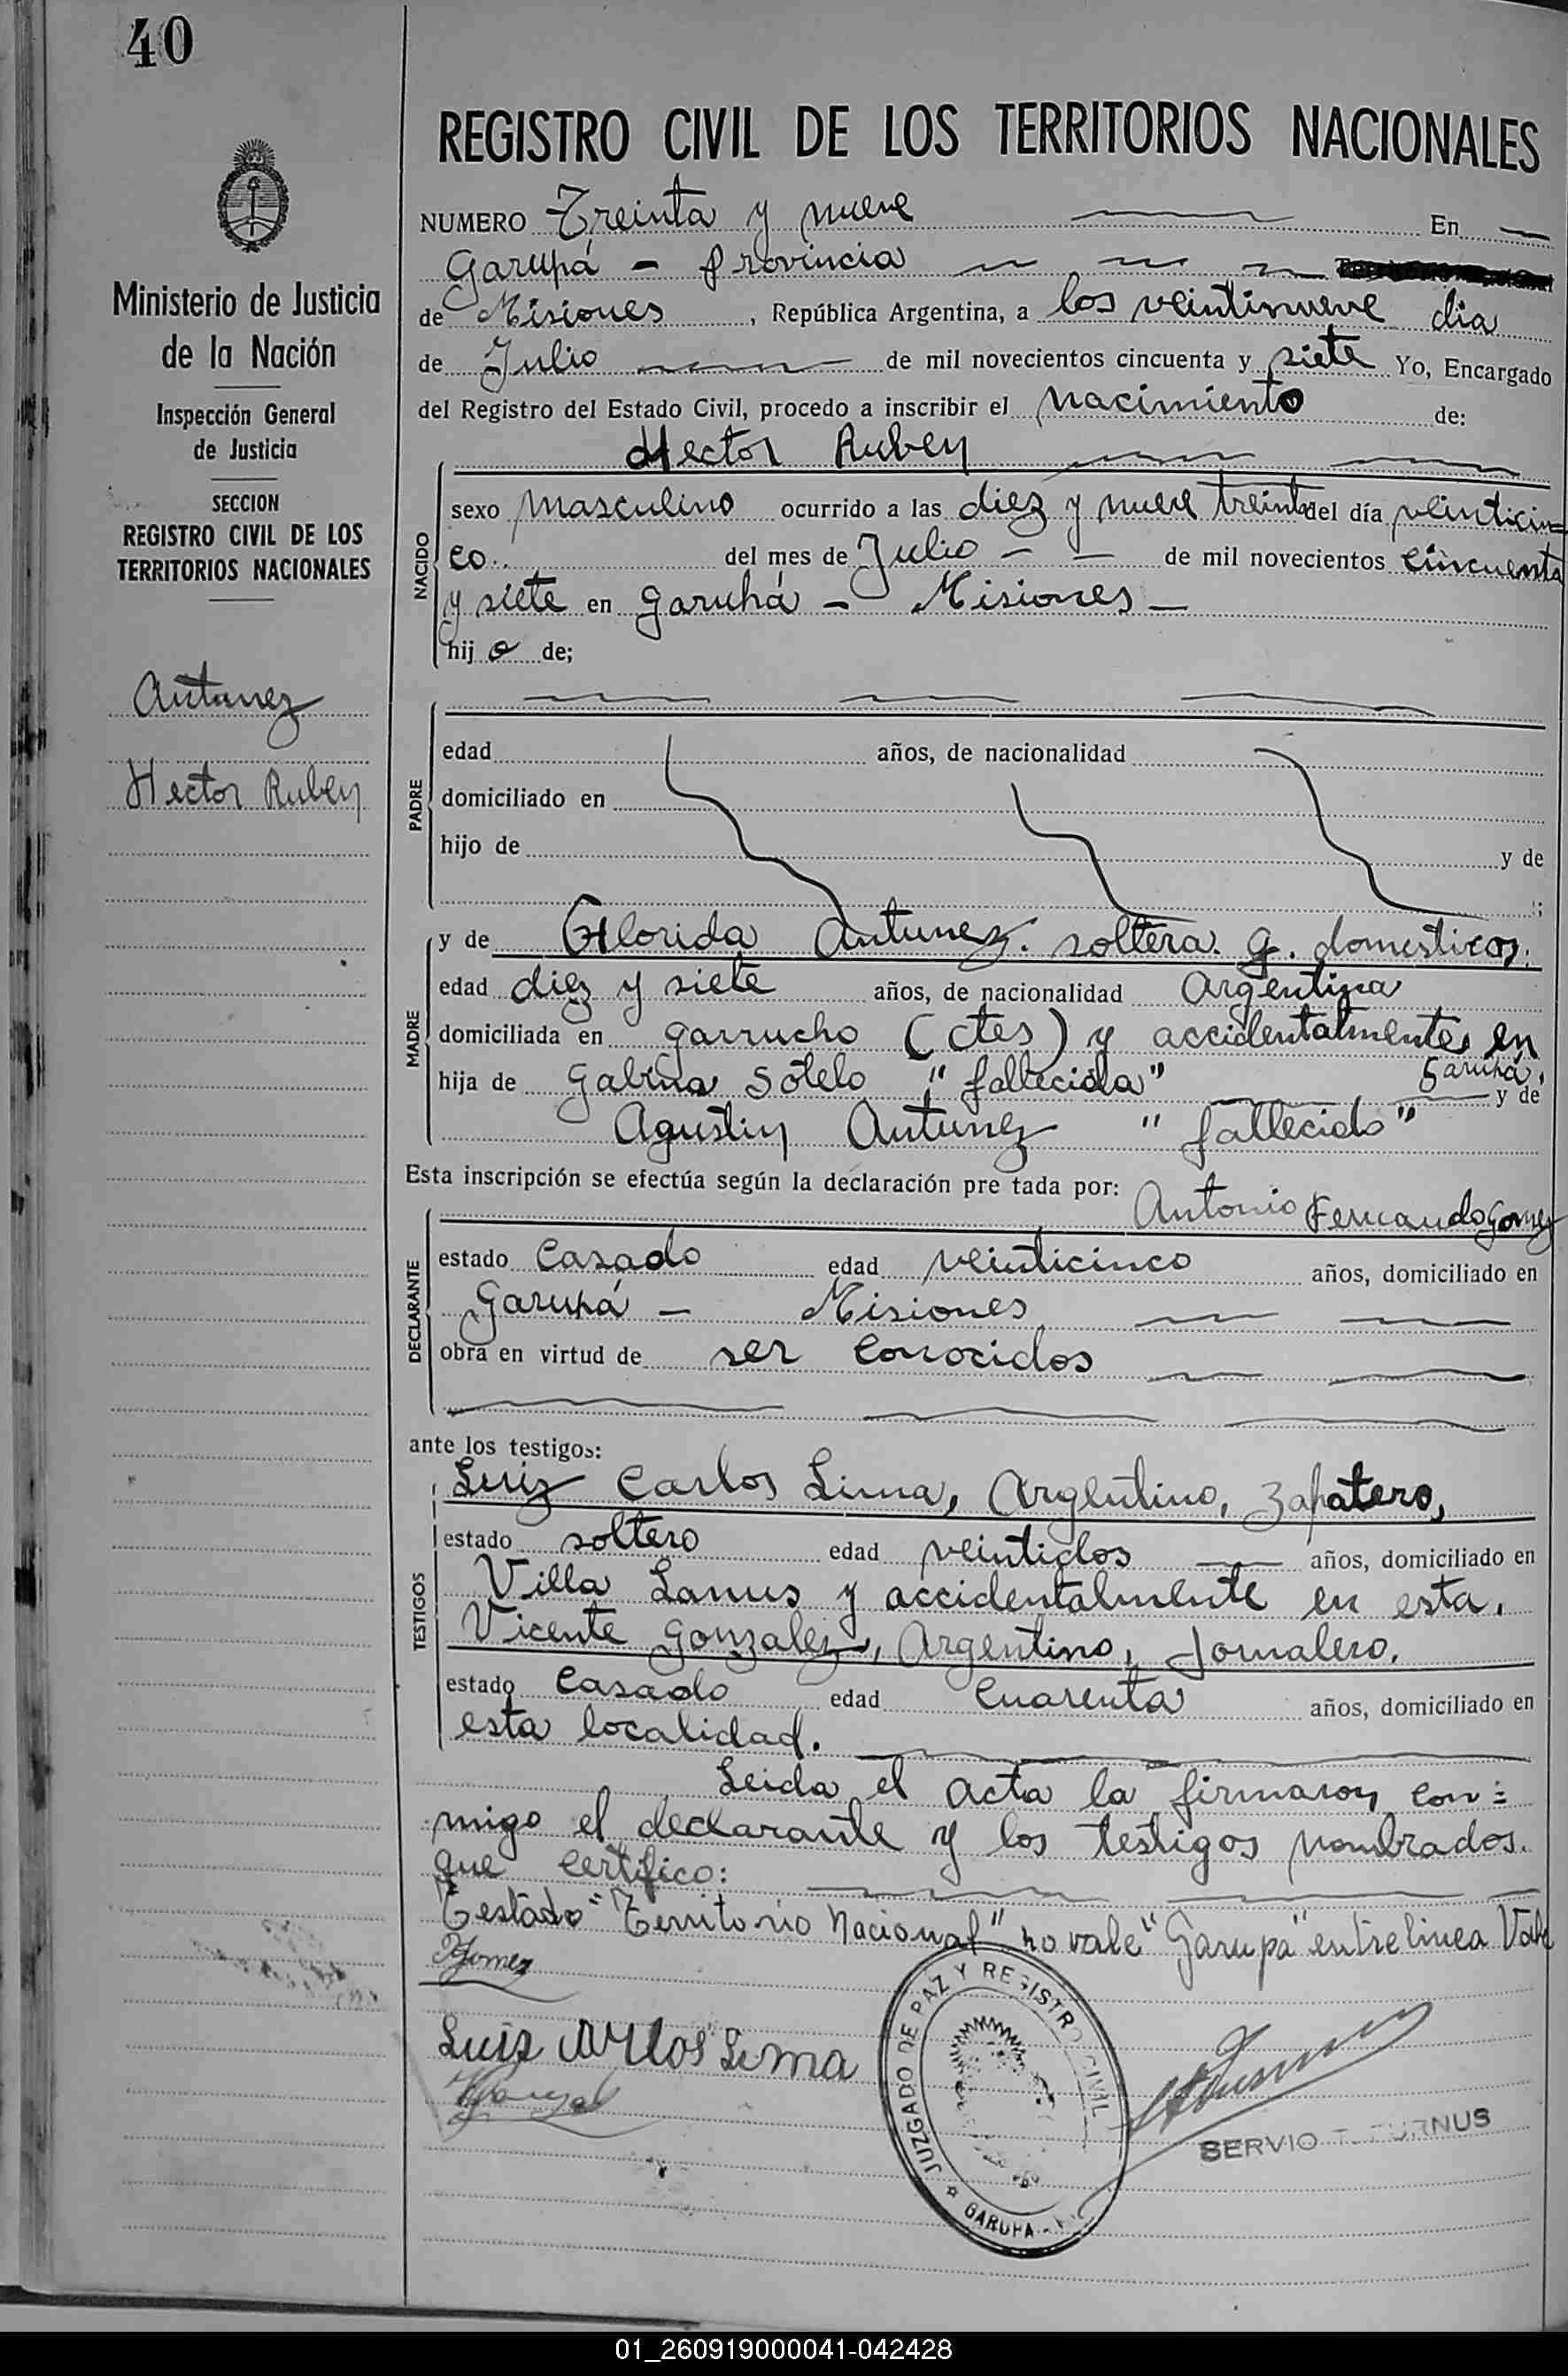 40
REGISTRO CIVIL DE LOS TERRITORIOS NACIONALES
Ministerio de Justicia
de la Nación
Inspección General
de Justicia
SECCION
REGISTRO CIVIL DE LOS
TERRITORIOS NACIONALES
Antunez
Hector Ruben
NUMERO Treinta y nueve En
Garupá - provincia
de Misiones, República Argentina, a los veintinueve dia
de Julio de mil novecientos cincuenta y siete Yo, Encargado
del Registro del Estado Civil, procedo a inscribir el Nacimiento de:
Hector Ruben
NACIDO
sexo masculino ocurrido a las diez y nueve treinta del día veinticin=
co.. del mes de Julio - - de mil novecientos cincuenta
y siete en Garupá - Misiones -
hij o de;
PADRE
edad años, de nacionalidad
domiciliado en
hijo de y de
;
MADRE
y de Glorida Antunez. soltera. q. domesticos.
edad diez y siete años, de nacionalidad Argentina
domiciliada en garrucho (ctes) y accidentalmente en
Garupá.
hija de Gabina Sotelo "fallecida" y de
Agustin Antunez "fallecido"
Esta inscripción se efectúa según la declaración pre tada por: Antonio Fernando Gomez
DECLARANTE
estado Casado edad veinticinco años, domiciliado en
Garupá - Misiones
obra en virtud de ser conocidos
ante los testigos:
TESTIGOS
Luiz Carlos Lima, Argentino, zapatero,
estado soltero edad veintidos años, domiciliado en
Villa Lanus y accidentalmente en esta.
Vicente Gonzalez, Argentino, Jornalero.
estado Casado edad Cuarenta años, domiciliado en
esta localidad.
Leida el acta la firmaron con=
migo el declarante y los testigos nombrados.
que certifico:
Testado "Territorio Nacional" no vale "Garupa" entre linea Vale
Gomez
Luiz Carlos Lima
JUZGADO DE PAZ Y REGISTRO CIVIL
GARUPA
SERVIO
01_260919000041-042428